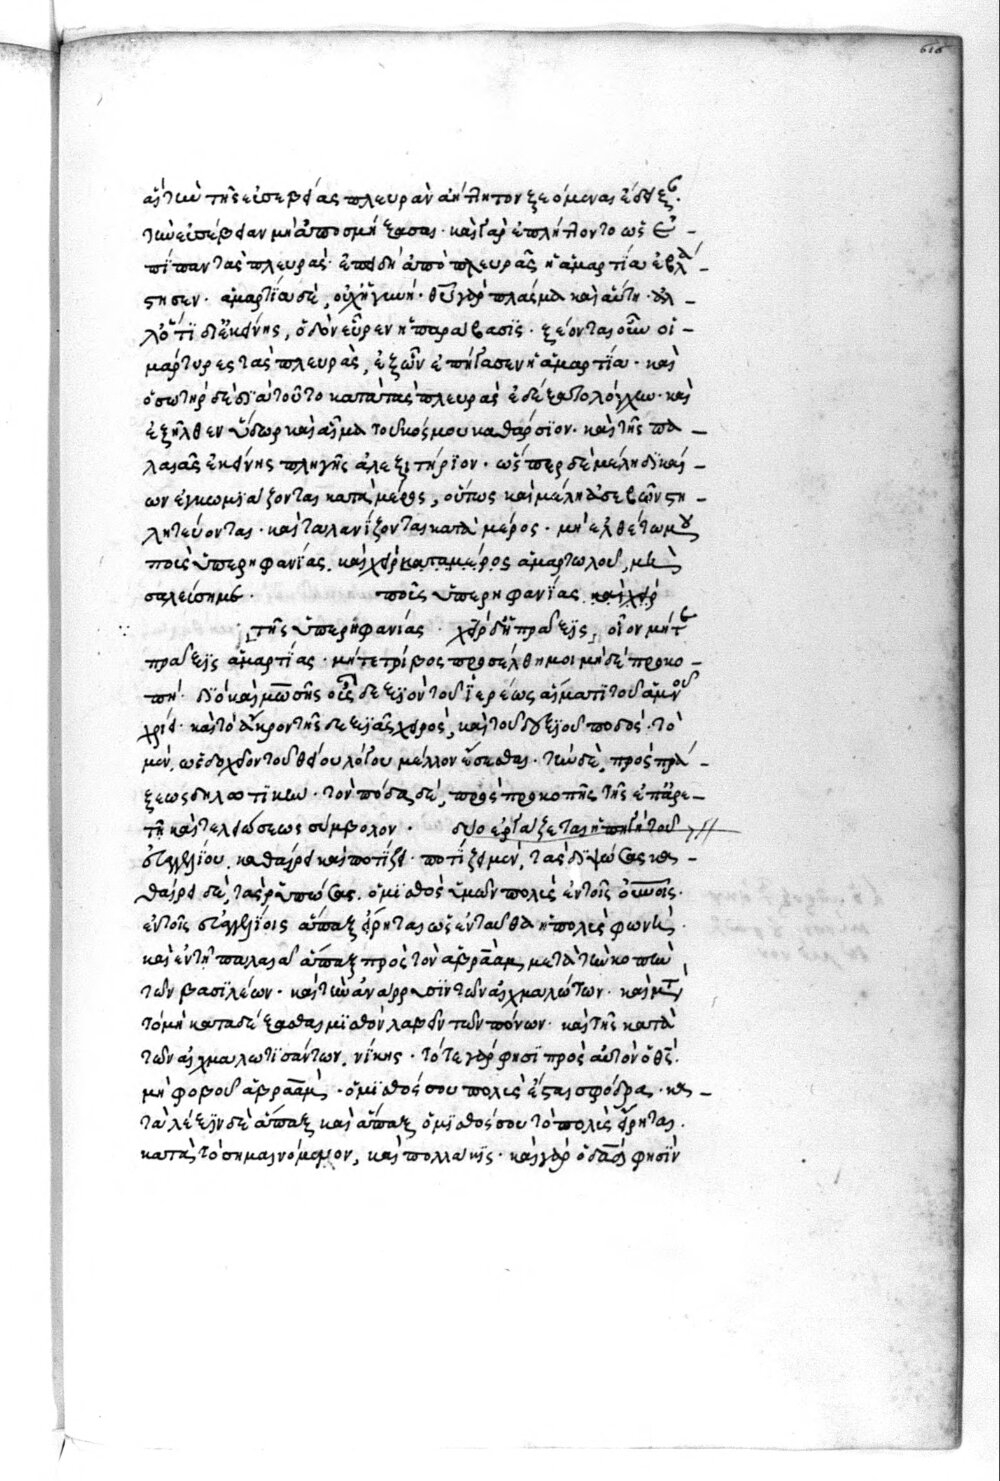 616
τῆς εὐσεβείας πλευρὰν
τὴν εὐσέβειαν μὴ ἀποσμήξασαι· καὶ γὰρ ἐπλήττοντο ὡς ἐ-
πίπαν τὰς πλευράς· ἐπειδὴ ἀπὸ πλευρᾶς ἡ ἁμαρτία ἐβλά-
στησεν· ἁμαρτία δὲ, οὐχὶ γυνή· θεοῦ γὰρ πλάσμα καὶ αὕτη· ἀλ-
λ' ὅτι δι' ἐκείνης, ὁδὸν εὗρεν ἡ παράβασις· ξέονται οὖν οἱ-
μάρτυρες τὰς πλευρὰς, ἐξ ὧν ἐπήγασεν ἡ ἁμαρτία· καὶ
ὁ σωτὴρ δὲ διὰ τοῦτο κατὰ τὰς πλευρὰς ἐδέξατο λόγχην· καὶ
ἐξῆλθεν ὕδωρ καὶ αἷμα τοῦ κόσμου καθάρσιον· καὶ τῆς πα-
λαιᾶς ἐκείνης πληγῆς ἀλεξιτήριον· ὥσπερ δὲ μέλη δικαί-
ων ἐγκωμιάζονται κατὰ μέρος, οὕτως καὶ μέλη ἀσεβῶν στη-
λιτεύονται· καὶ ταλανίζονται κατὰ μέρος· μὴ ἐλθέτω μοι
ποῦς ὑπερηφανίας. καὶ χεὶρ κατὰ μέρος ἁμαρτωλοῦ, μὴ
σαλεύσῃ με. ποῦς ὑπερηφανίας καὶ χεὶρ
τῆς ὑπερηφανίας· χεὶρ δὲ ἡ πρᾶξις, οἷον μήτε
πρᾶξις ἁμαρτίας· μήτε τρίβος προσέλθῃ μοι μηδὲ προκο-
πή· διὸ καὶ μωσῆς οὖς δεξιὸν τοῦ ἱερέως αἵματι τοῦ ἀμνοῦ
χρίει· καὶ τὸ ἄκρον τῆς δεξιᾶς χειρὸς, καὶ τοῦ δεξιοῦ ποδός· τὸ
μὲν, ὡς δοχεῖον τοῦ θείου λόγου μέλλον ἔσεσθαι· τὴν δὲ, πρὸς πρά-
ξεως δηλωτικήν· τὸν πόδα δὲ, πρὸς προκοπῆς τῆς ἐπ' ἀρε-
τῇ καὶ τελειώσεως σύμβολον· δύο ἐργάζεται ἡ πηγὴ τοῦ
εὐαγγελίου, καθαίρει καὶ ποτίζει· ποτίζει μὲν, τὰς διψώσας κα-
θαίρει δὲ, τὰς ῥυπώσας. ὁ μισθὸς ὑμῶν πολὺς ἐν τοῖς οὐνοῖς.
ἐν τοῖς εὐαγγελίοις ἅπαξ εἴρηται ὡς ἐνταῦθα ἡ πολὺς φωνὴ·
καὶ ἐν τῇ παλαιᾷ ἅπαξ πρὸς τὸν ἀβραὰμ μετὰ τὴν κοπὴν
τῶν βασιλέων· καὶ τὴν ἀνάρρυσιν τῶν αἰχμαλώτων· καὶ μετὰ
τὸ μὴ καταδέξασθαι μισθὸν λαβεῖν τῶν πόνων· καὶ τῆς κατὰ
τῶν αἰχμαλωτισάντων, νίκης· τότε γάρ φησι πρὸς αὐτὸν ὁ θς·
μὴ φοβοῦ ἀβραὰμ· ὁ μισθός σου πολὺς ἔσται σφόδρα· κα-
τὰ λέξιν δὲ ἅπαξ καὶ ἅπαξ ὁ μισθός σου τὸ πολὺς εἴρηται.
κατὰ τὸ σημαινόμενον, καὶ πολλάκις· καὶ γὰρ ὁ δαδ φησὶν